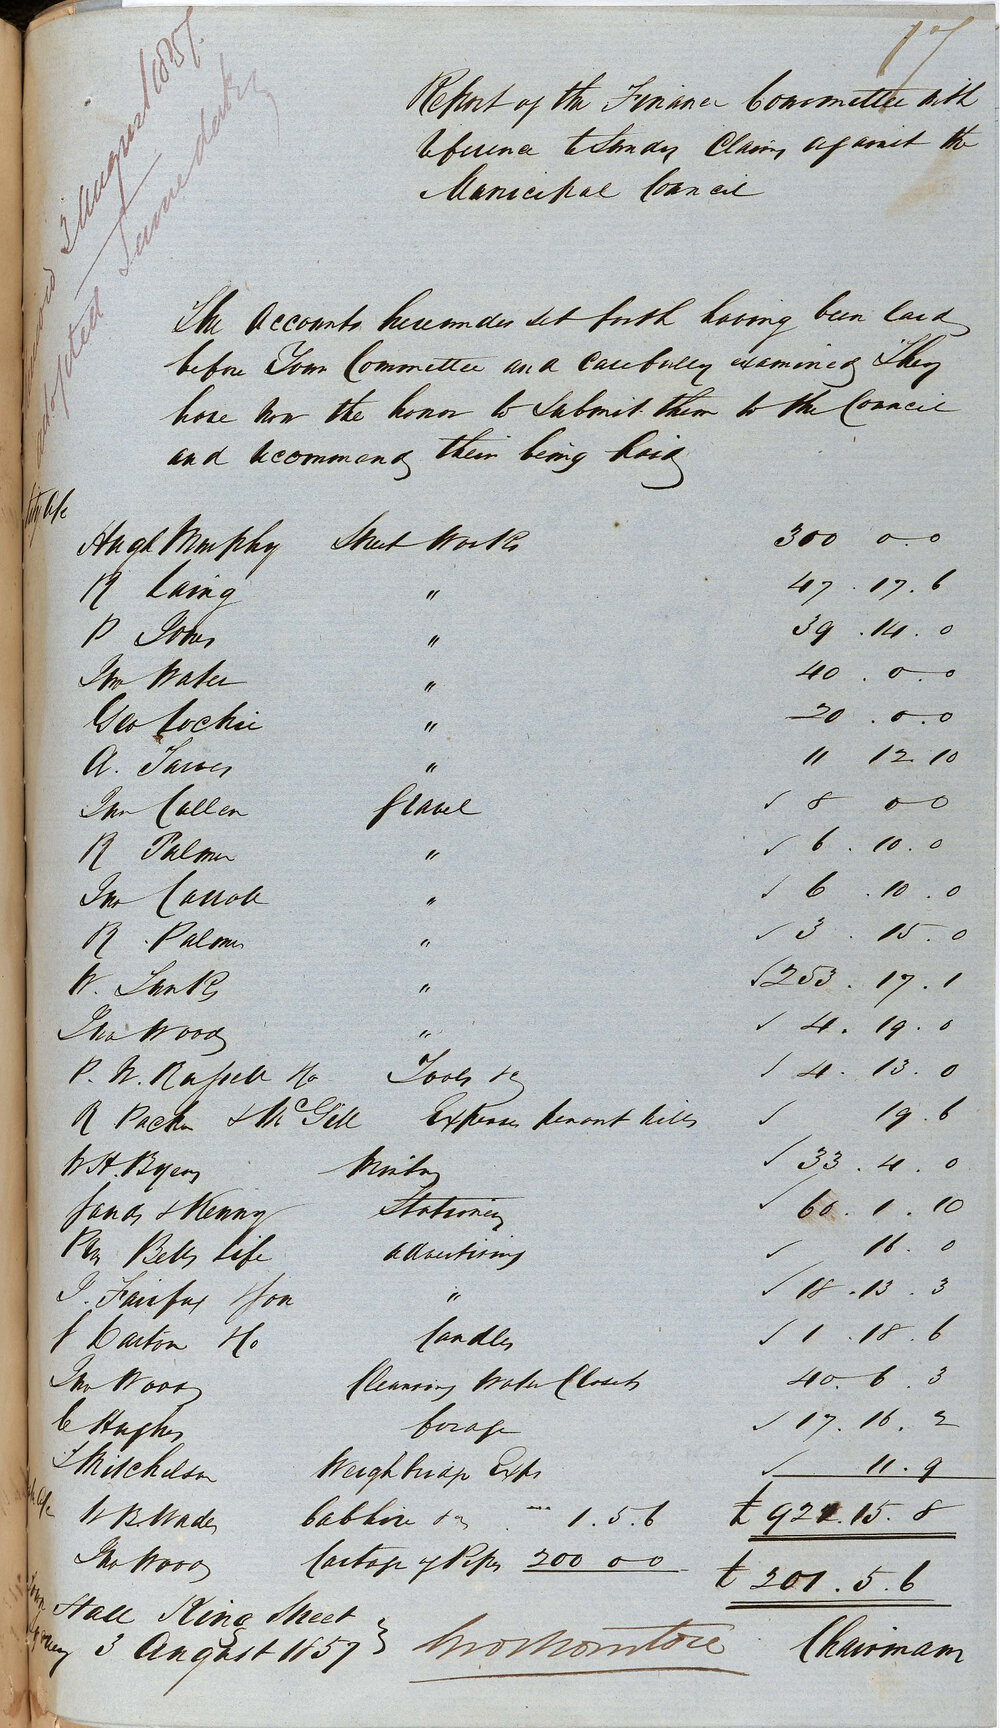 17
3 August 1857.
adopted Same date
Report of the Finance Committee with
reference to Sundry Claims against the
Municipal Council
The Accounts hereunder set forth having been laid
before Your Committee and carefully examined They
have now the honor to submit them to the Council
and recommend their being paid
City A/c
Hugh Murphy Street Works 300 0.0
R Laing " 47.17.6
P Jones " 39.14.0
Jno Water " 40.0.0
Geo Lockie " 20.0.0
A. " 11 12 10
Jno Cullen Gravel √ 8 0 0
R Palmer " √ 6.10.0
Jno Carroll " √ 6.10.0
R. Palmer " √ 3.15.0
W. " √ 253.17.1
Jno Wood " √ 4.19.0
P. N. Russell & Co Tools &c √ 4.13.0
R Packer & McGill Expenses √ 19.6
W H. Byers √ 33.4.0
Sands & Kenny Stationery √ 60.1.10
Bells Life advertising √ 16.0
J. Fairfax & Son " √ 18.13.3
Carton & Co Candles √ 1.18.6
Jno Wood Cleansing Water Closets 40.6.3
C Hughes forage √ 17.16.2
Mitchelson Weighbridge Exps √ 11.9
W B Wade &c 1.5.6 £ 921.15.8
Jno Wood Cartage of Pipes 200 0 0 £ 201.5.6
Hall King Street
3 August 1857 Chairman